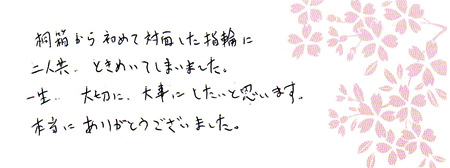 桐箱から初めて対面した指輪に
二人共、ときめいてしまいました。
一生、大切に、大事にしたいと思います。
本当にありがとうございました。